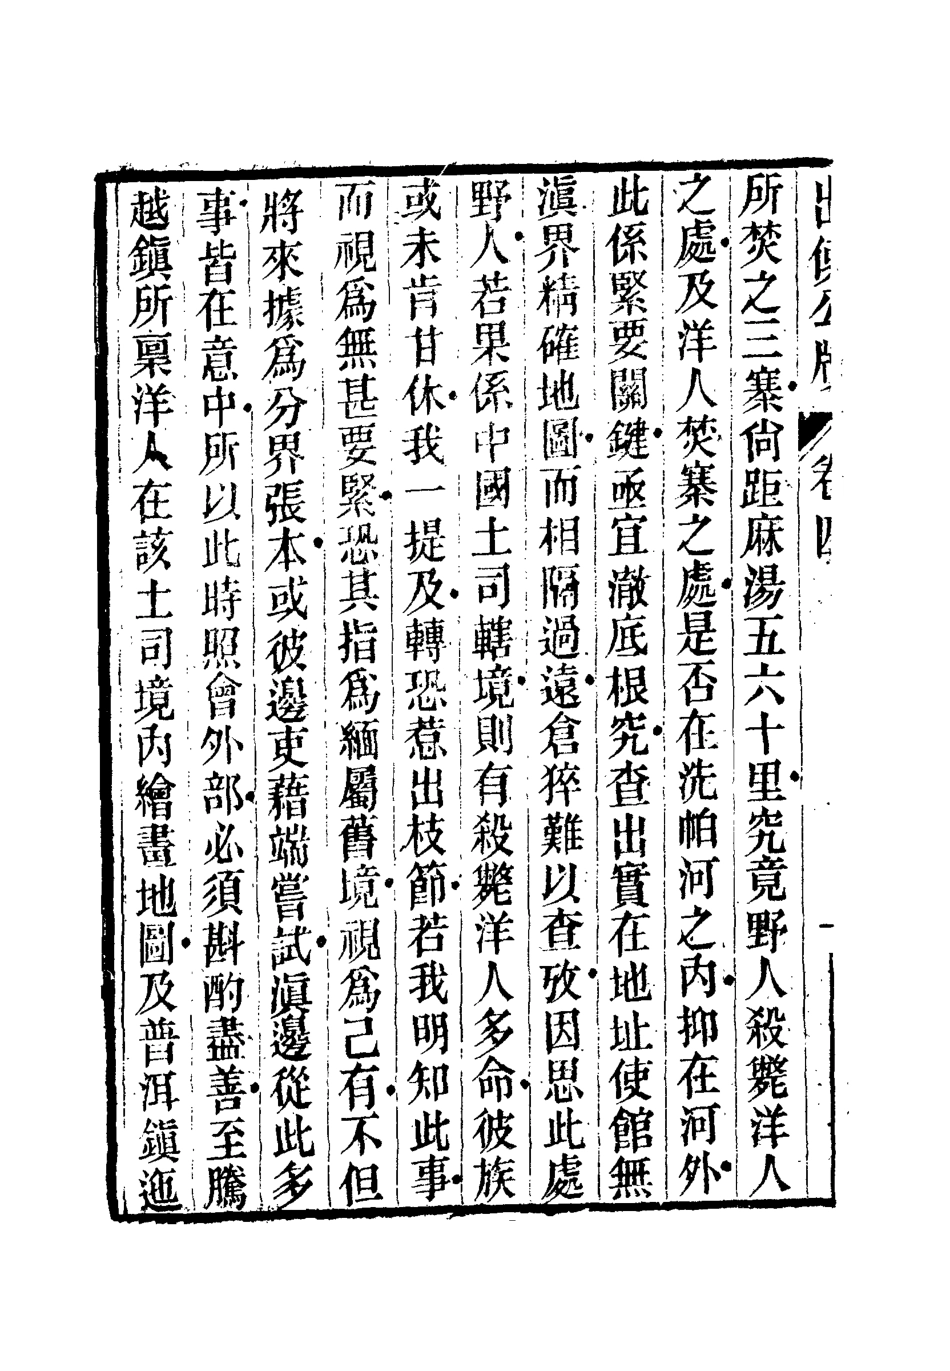 出使公牘 卷四
所焚之三寨尙距麻湯五六十里究竟野人殺斃洋人
之處及洋人焚寨之處是否在洗帕河之內抑在河外
此係緊要關鍵亟宜澈底根究查出實在地址使館無
滇界精確地圖而相隔過遠倉猝難以查攷因思此處
野人若果係中國土司轄境則有殺斃洋人多命彼族
或未肯甘休我一提及轉恐惹出枝節若我明知此事
而視爲無甚要緊恐其指爲緬屬舊境視爲己有不但
將來據爲分界張本或彼邊吏藉端嘗試滇邊從此多
事皆在意中所以此時照會外部必須斟酌盡善至騰
越鎭所稟洋人在該土司境內繪畫地圖及普洱鎭迤